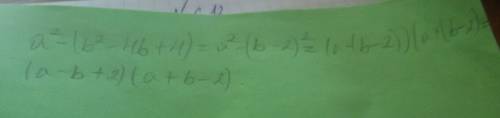 a²-(b²-4b+4)=a²-(b-2)²=(a-(b-2))(a+(b-2)=
(a-b+2)(a+b-2)